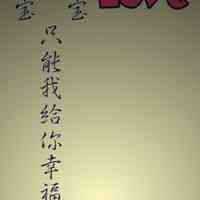 宝
宝
只能我給你幸福